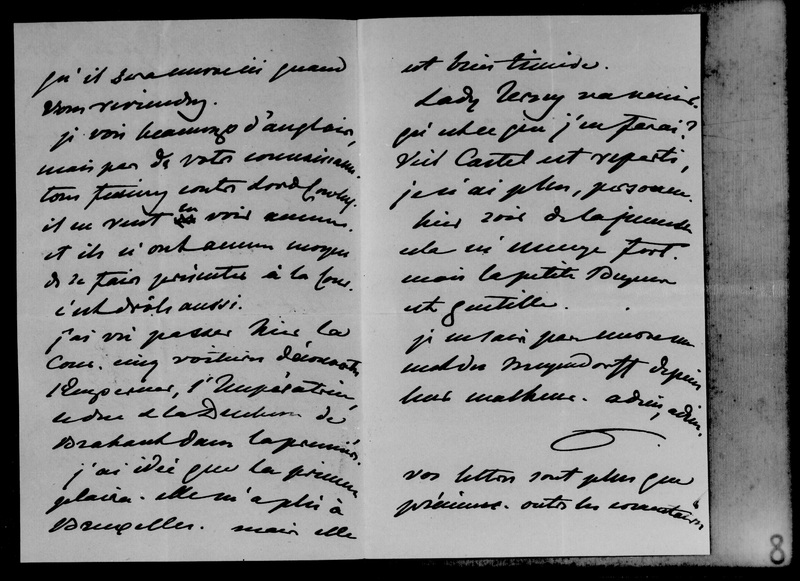 qu'il sera encore ici quand
vous reviendrez.
je vois beaucoup d'anglais,
mais pas de votre connaissance.
tous furieux contre Lord Cowley.
il ne veut en voir aucun.
et ils n'ont aucun moyen
de se faire présenter à la Cour.
c'est drôle aussi.
j'ai vu passer hier la
Cour. cinq voitures découvertes
l'Empereur, l'Impératrice,
le duc et la Duchesse de
Brabant dans la première.
j'ai idée que la princesse
plaira. elle m'a plu à
Bruxelles. mais elle
est bien timide.
Lady Jersey va venir.
qu'est ce que j'en ferai?
Viel Castel est reparti,
je n'ai plus personne.
hier soir de la jeunesse
cela m'ennuye fort.
mais la petite
est gentille.
je ne sais pas encore un
mot des Meyendorff depuis
leur malheur. adieu, adieu.
vos lettres sont plus que
précieuses. outre les
8